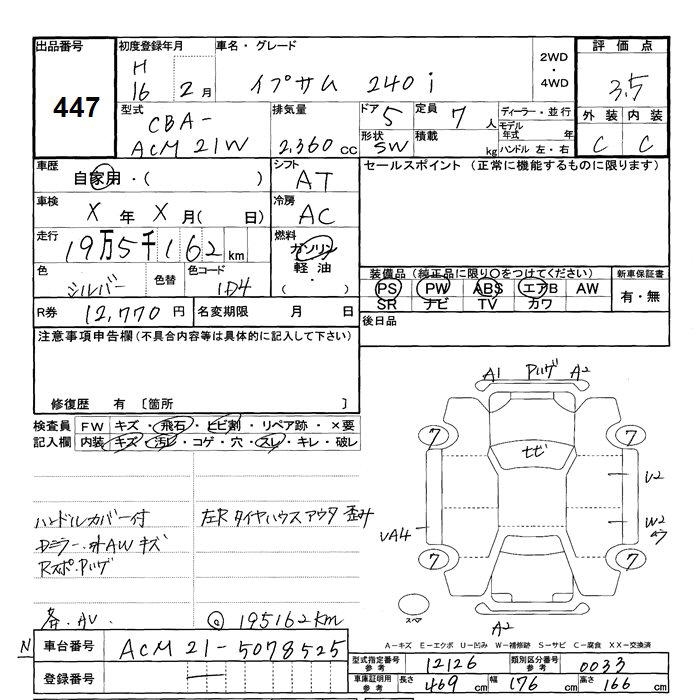 出品番号
447
初度登録年月
H
16 2月
車名・グレード
イプサム 240i
2WD
・
4WD
評価点
3.5
外装 内装
C C
型式
CBA-
ACM21W
排気量
2,360cc
ドア 5
定員 7人
形状 SW
積載 kg
ディーラー・並行
モデル年式 年
ハンドル 左・右
車歴
自家用・( )
シフト
AT
セールスポイント (正常に機能するものに限ります)
車検
X年X月( 日)
冷房
AC
走行
19万5千162km
燃料
ガソリン
軽油
・( )
色
シルバー
色替
色コード
1D4
装備品 (純正品に限り○をつけてください)
PS PW ABS エアB AW
SR ナビ TV カワ
新車保証書
有・無
R券 12,770円
名変期限 月 日
後日品
注意事項申告欄(不具合内容等は具体的に記入して下さい)
修復歴 有 〔箇所 〕
検査員
記入欄
FW キズ・飛石・ヒビ割・リペア跡・×要
内装 キズ・汚レ・コゲ・穴・スレ・キレ・破レ
A1 Pハゲ A2
7 7
ナビ
U2
W2
UA4
7 7
スペア
A2
ハンドルカバー付
左Rタイヤハウスアウタ歪み
Dミラー・外AWキズ
RスポPハゲ
195162km
A−キズ E−エクボ U−凹み W−補修跡 S−サビ C−腐食 XX−交換済
N 車台番号 ACM21-5078525
登録番号 —
型式指定番号 参考 12126
類別区分番号 参考 0033
車庫証明用 参考 長さ 469cm 幅 176cm 高さ 166cm